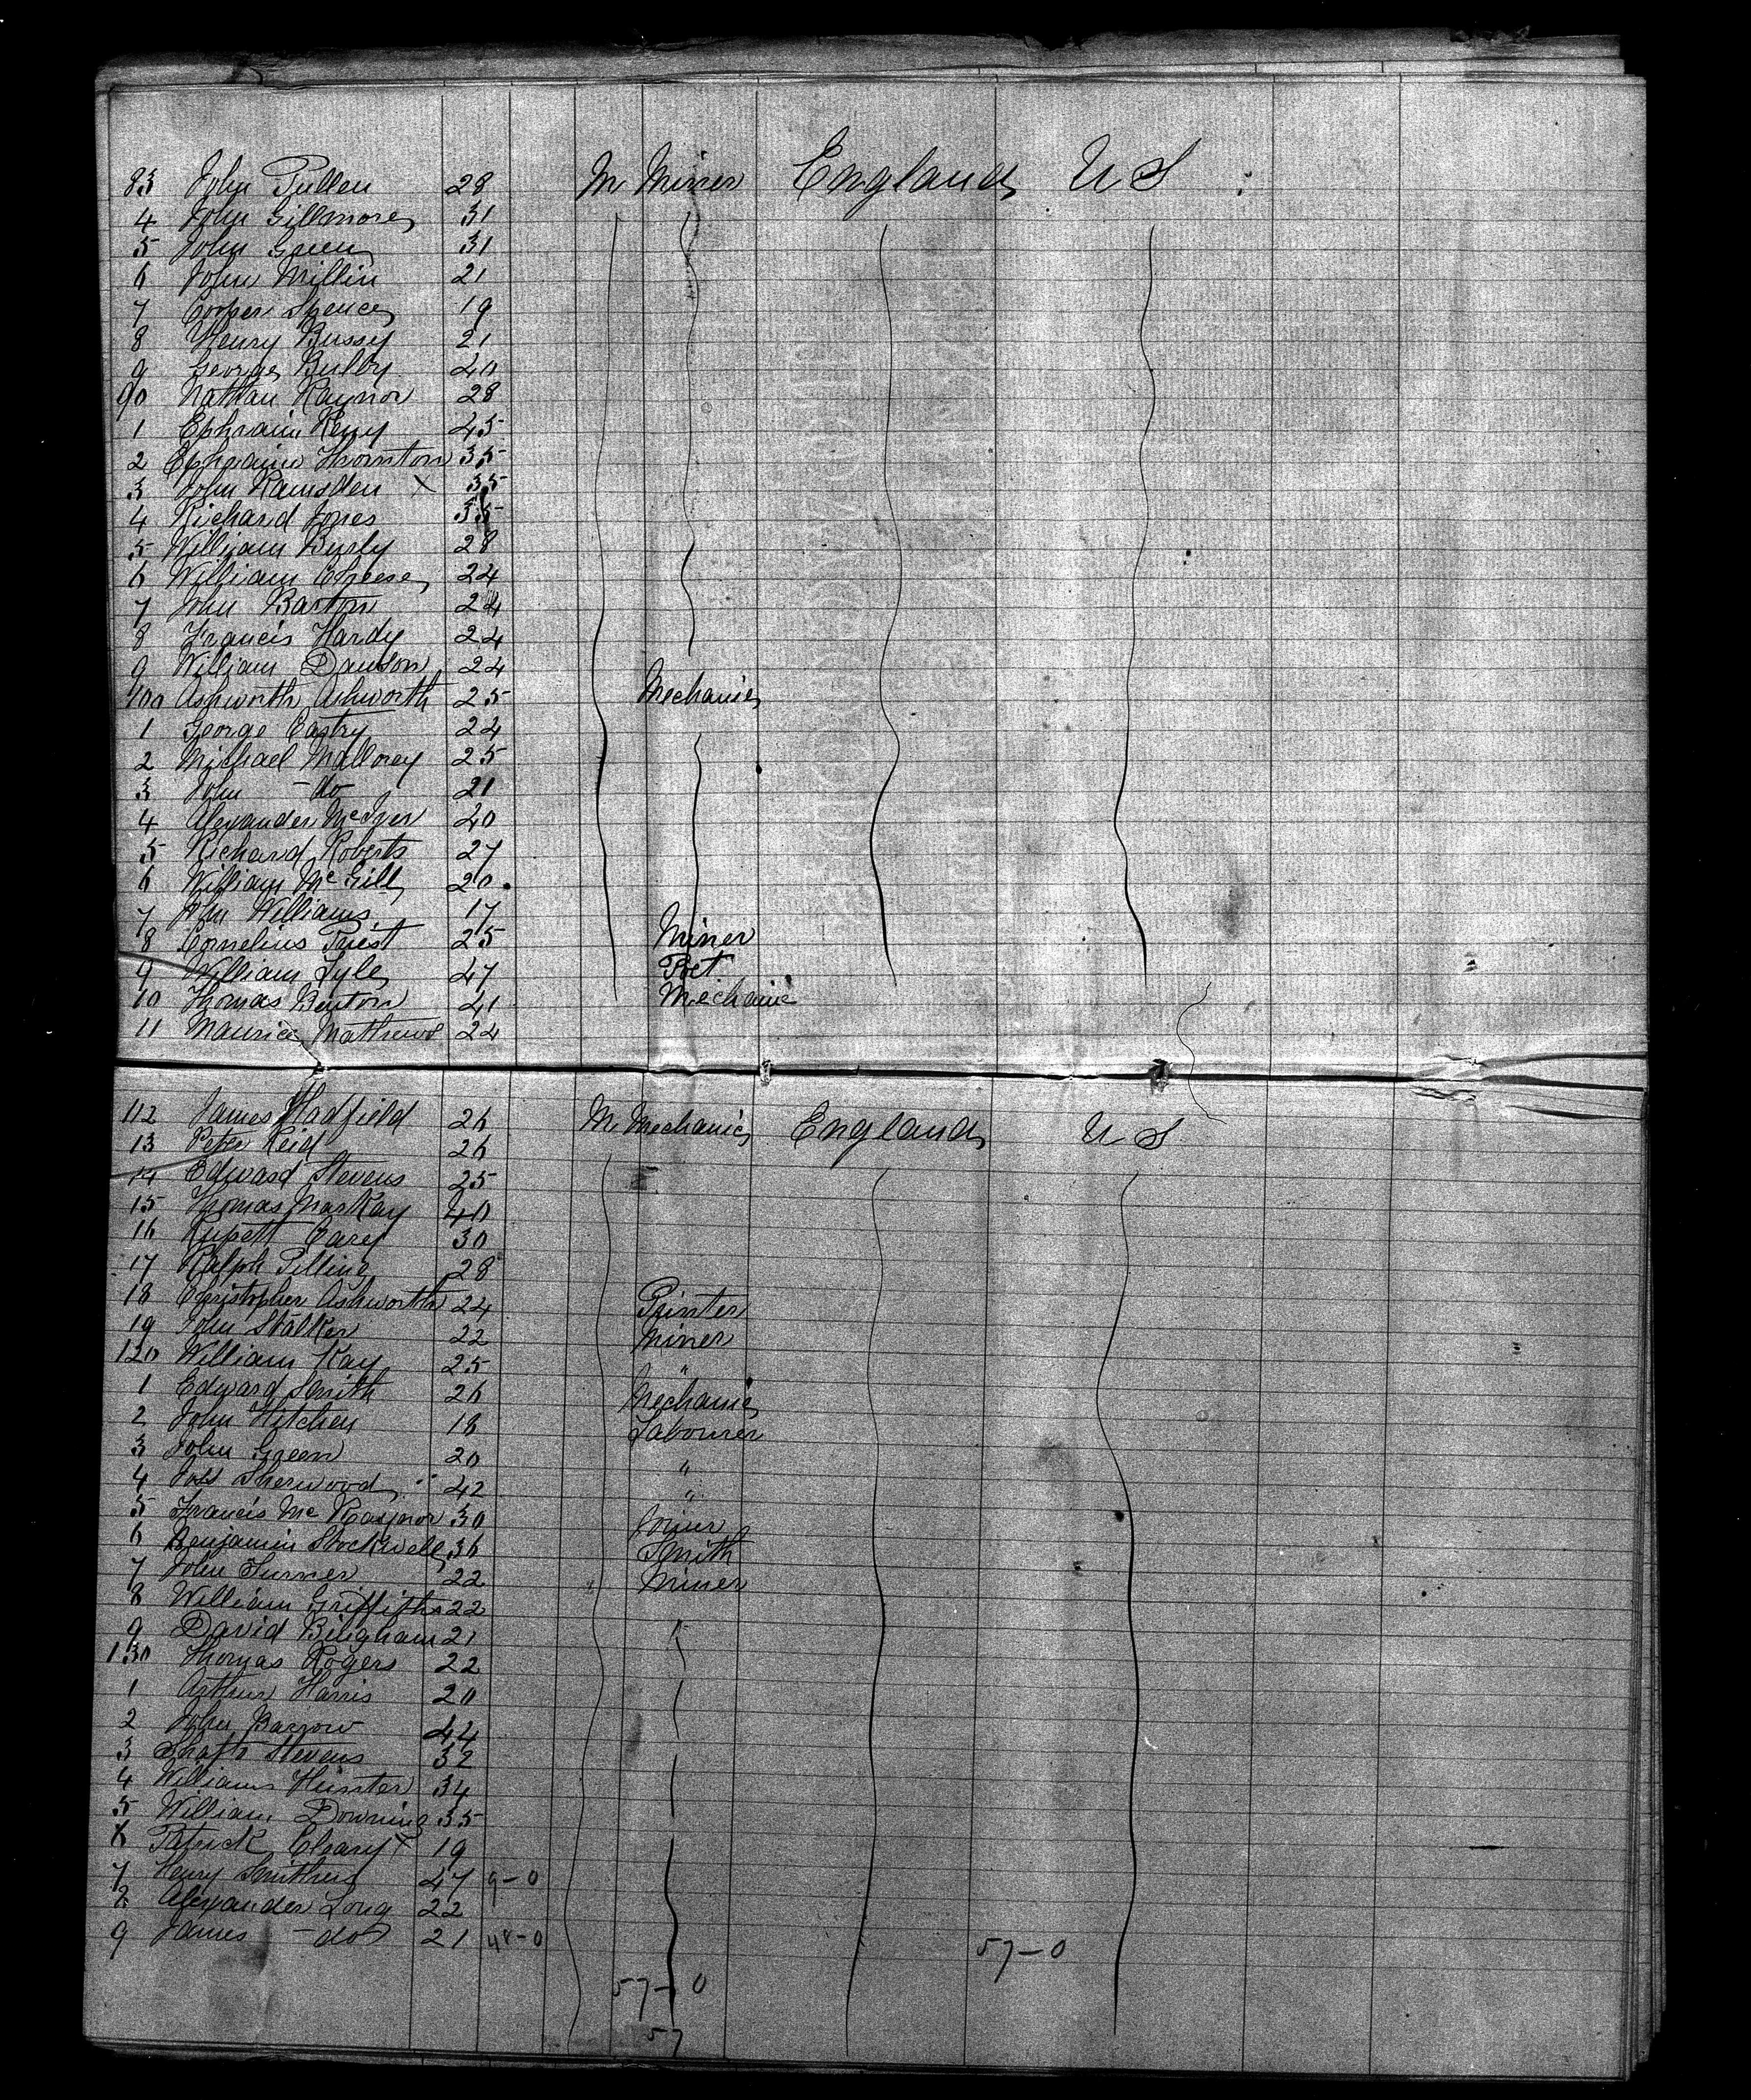 83 John Pullen 28 M Miner England U S
4 John Gillmore 31
5 John Green 31
6 John Millin 21
7 Cooper Spence 19
8 Henry Bussy 21
9 George Bulby 40
90 Nathan Raynor 28
1 Ephraim Keny 45
2 Ephraim Thornton 35
3 John Ramsden X 35
4 Richard Jones 35
5 William Byrly 28
6 William Cheese 24
7 John Barton 24
8 Francis Hardy 24
9 William Dawson 24
100 Ashworth Ashworth 25 Mechanic
1 George Eastry 24
2 Michael Mallorey 25
3 John - do 21
4 Alexander McIver 20
5 Richard Roberts 27
6 William McGill 20
7 John Williams 17
8 Cornelius Priest 25 Miner
9 William Lyle 47 Poet
10 Thomas Benton 41 Mechanic
11 Maurice Mathews 24
112 James Hadfield 26 M Mechanic England U S
13 Peter Reid 26
14 Edward Stevens 25
15 Thomas MacKay 40
16 Carey 30
17 Ralph Pilling 28
18 Christopher Ashworth 24 Painter
19 John Stalker 22 Miner
120 William Kay 25 "
1 Edward Smith 26 Mechanic
2 John Hitchen 18 Labourer
3 John Green 20 "
4 Joss Sherwood 42 "
5 Francis Mc Raynor 30 Joiner
6 Benjamin Stockwell 36 Smith
7 John Turner 22 Miner
8 William Griffiths 22
9 David Bingham 21
130 Thomas Rogers 22
1 Arthur Harris 20
2 John Barrow 44
3 Shafto Stevens 32
4 William Hunter 34
5 William Downing 35
6 Patrick Cleary X 19
7 Henry Smithers 47 9-0
8 Alexander Long 22
9 James - do 21 48-0 57-0
57-0
57